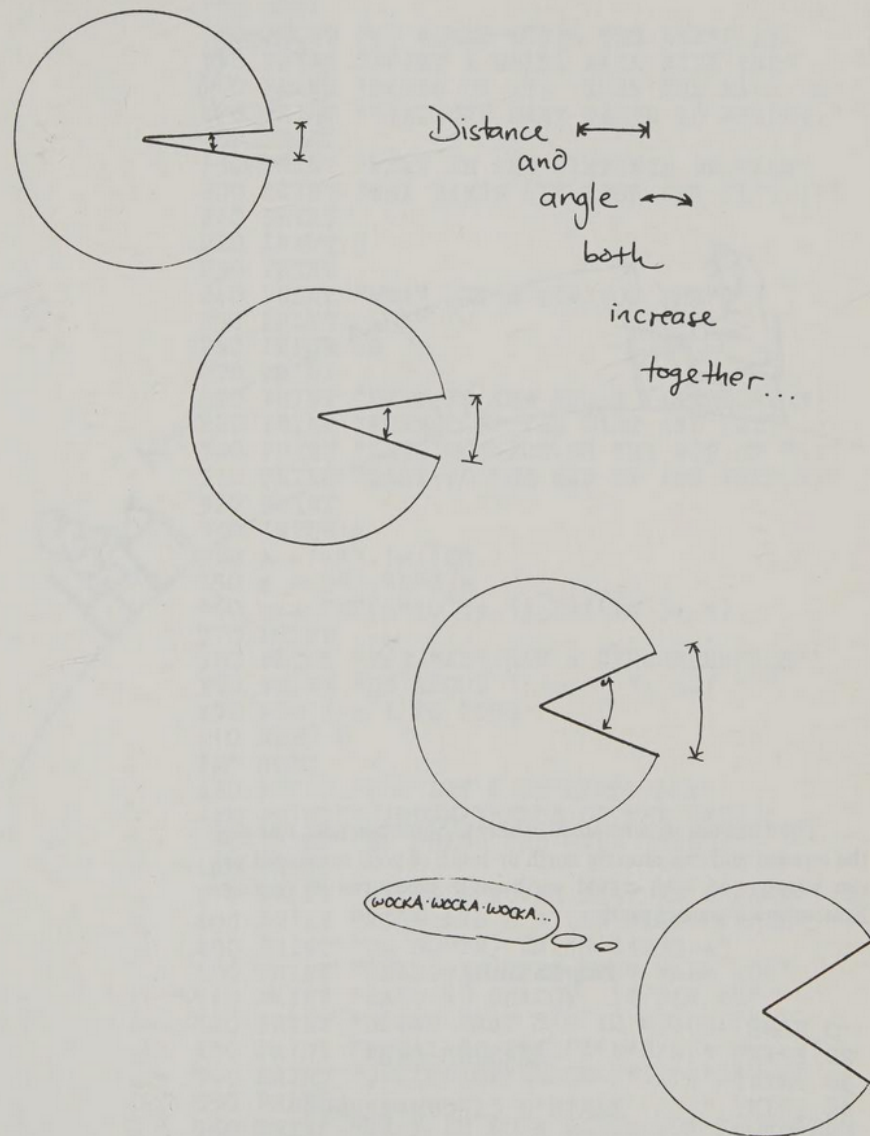 Distance
and
angle
both
increase
together...
WOCKA·WOCKA·WOCKA...